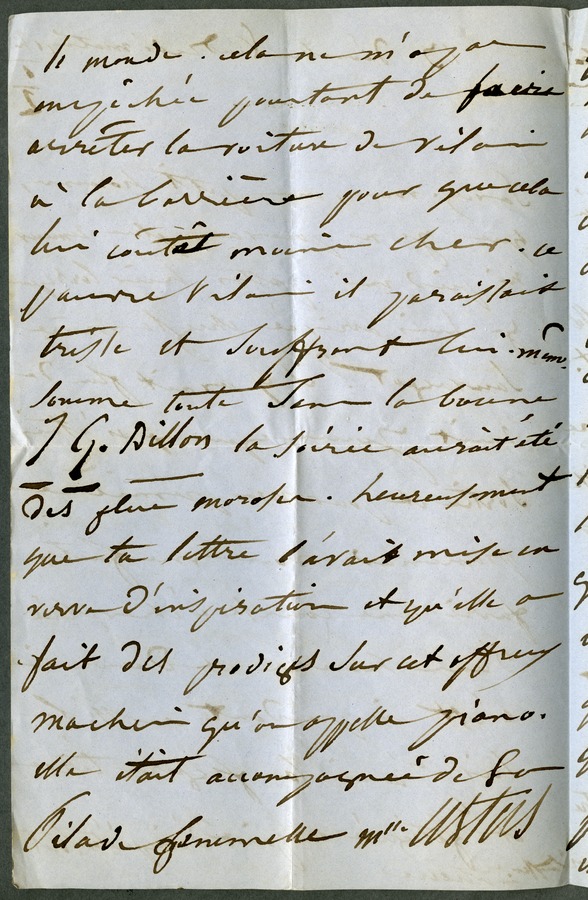 le monde. cela ne m'a pas
empêchée pourtant de faire
arrêter la voiture de Vilain
à la barrière pour que cela
lui coutât moins cher. ce
pauvre Vilain il paraissait
triste et souffrant lui-même.
somme toute sans la bonne
J G. Dillon la soirée aurait été
des plus moroses. heureusement
que ta lettre l'avait mise en
verve d'inspiration et qu'elle a
fait des prodiges sur cet affreux
machin qu'on appelle piano.
elle était accompagnée de son
Pilade femmelle Mlle